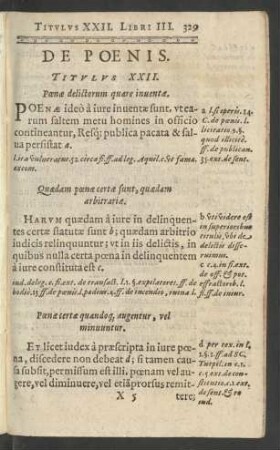 TITVLVS XXII. LIBRI III. 329
DE POENIS.
TITVLVS XXII.
Pœnæ delictorum quare inuentæ.
POENÆ ideò à iure inuentæ sunt, vt ea-
rum saltem metu homines in officio
contineantur, Resq; publica pacata & sal-
ua persistat a.
a l. si operis. 14.
C. de pœnis. l.
licitatio. 9. §.
quod illicitè.
ff. de publican.
35. ext. de sent.
excom.
Quædam pœnæ certæ sunt, quædam
arbitrariæ.
HARVM quædam à iure in delinquen-
tes certæ statutæ sunt b; quædam arbitrio
iudicis relinquuntur; vt in iis delictis, in
quibus nulla certa pœna in delinquentem
à iure constituta est c.
b vt videre est
in superioribus
titulis, vbi de
delictis disse-
ruimus.
c c. 4. in fi. ext.
de off. & pot.
iud. deleg. c. fi. ext. de transact. l. 1. §. expilatores. ff. de effractorib. l.
Pœnæ certæ quandoq, augentur, vel
minuuntur.
ET licet iudex à præscripta in iure pœ-
na, discedere non debeat d; si tamen cau-
sa subsit, permissum est illi, pœnam vel au-
gere, vel diminuere, vel etiã prorsus remit-
d per tex. in l.
1. §. 2. ff. ad SC.
Turpil. in c. 2.
&c. 5. ext. de con-
stitutio. c. 1. ext.
de sent. & re
iud.
X 5 tere;